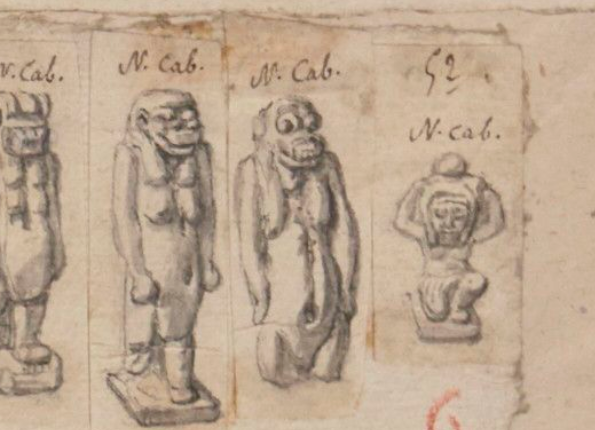 N. Cab.
N. Cab.
N. Cab.
52
N. cab.